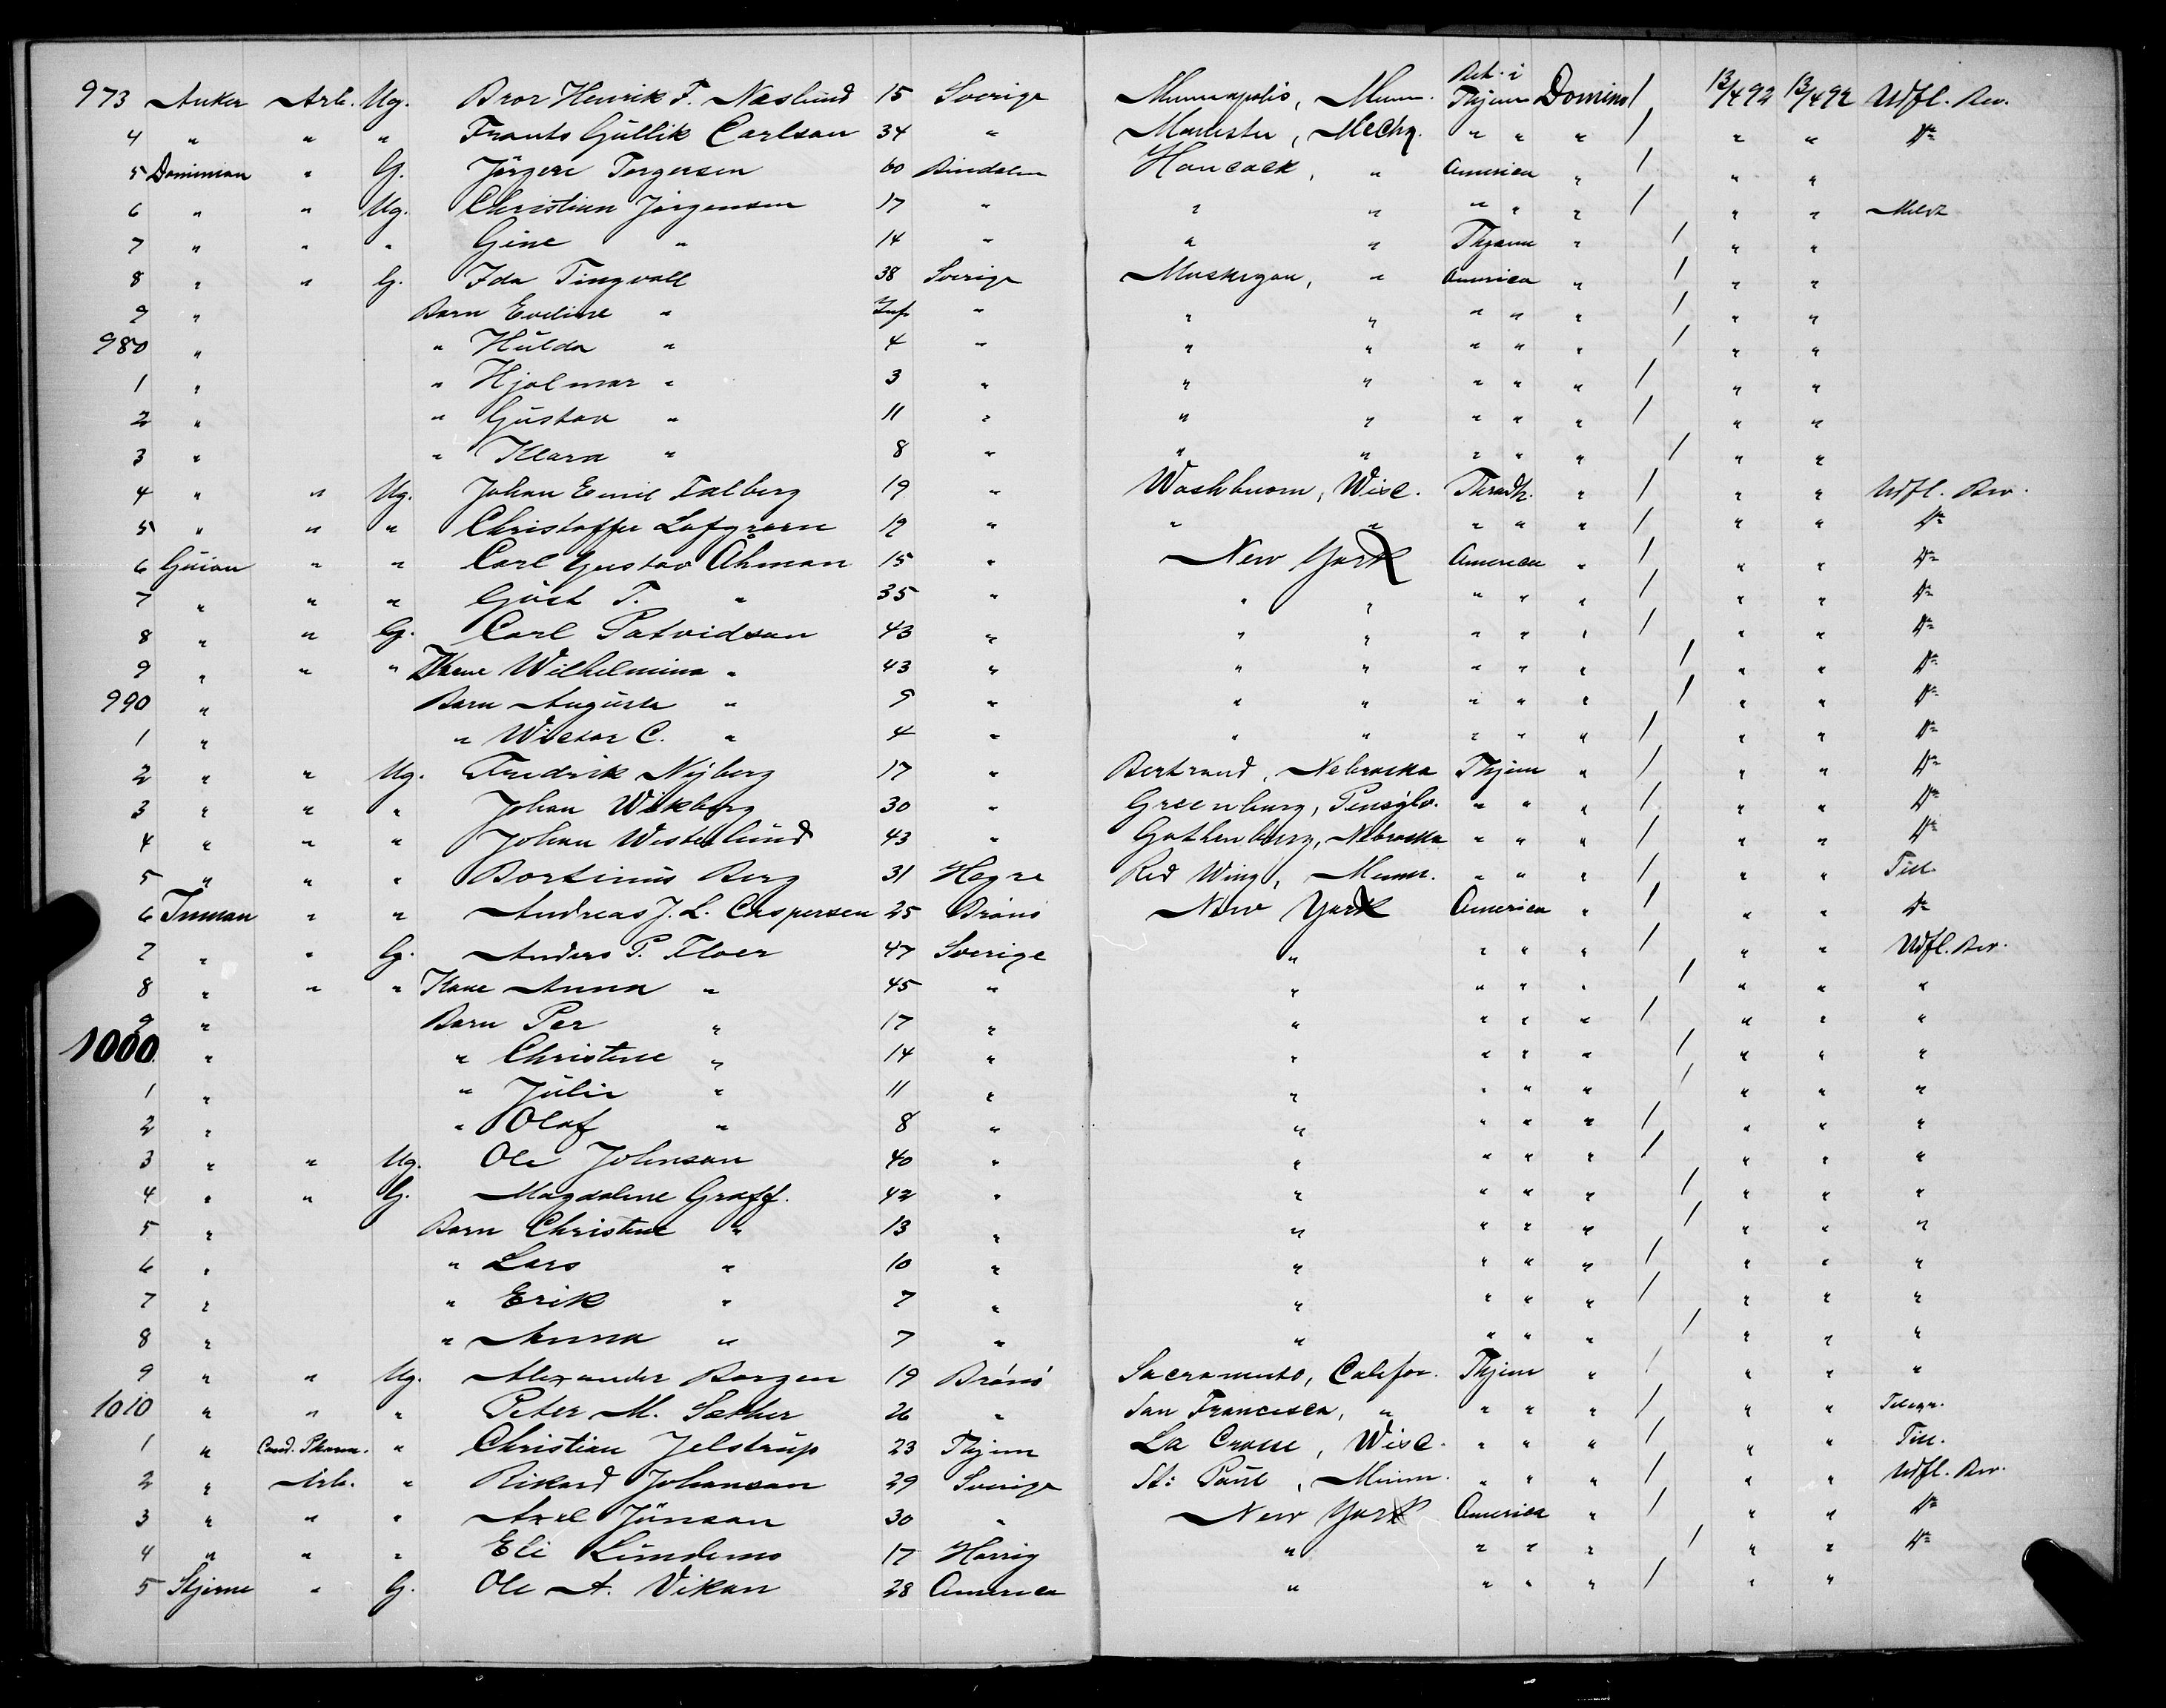 Bet. i
973 Anker Arb. Ug. Bror Henrik F. Naslund 15 Sverige Minneapolis, Minn. Thjem Domino / 13/4 92 13/4 92 Udfl. Bev.
4 " " " Frants Gullik Carlson 34 " Manister, Mechg. " " " / " " do
5 Dominion " G. Jörgen Torgersen 60 Bindalen Hancock, " America " / " "
6 " " Ug. Christian Jørgensen 17 " " " " " " / " "
7 " " " Gine " 14 " " " Thjem " / " "
8 " " G. Ida Tingvall 38 Sverige Muskegon, " America " / " "
9 " Barn Eveline " Inf. " " " " " " / " "
980 " " Hulda " 4 " " " " " " / " "
1 " " Hjalmar " 3 " " " " " " / " "
2 " " Gustav " 11 " " " " " " / " "
3 " " Klara " 8 " " " " " " / " "
4 " " Ug. Johan Emil Falberg 19 " Washburn, Wisc. Thradh. " / " " Udfl. Bev.
5 " " " Christoffer Lofgrven 19 " " " " " " / " " do
6 Guion " " Carl Gustav Åhman 15 " New York America " / " " do
7 " " " Gust T. " 35 " " " " " " / " " do
8 " " G. Carl Patvidson 43 " " " " " " / " " do
9 " " " Kone Wilhelmina " 43 " " " " " " / " " do
990 " Barn Augusta " 9 " " " " " " / " " do
1 " " Wictor C. " 4 " " " " " " / " " do
2 " " Ug. Fredrik Nyberg 17 " Bertrand, Nebraska Thjem " / " " do
3 " " " Johan Wikberg 30 " Greenburg, Pensylv. " " " / " " do
4 " " " Johan Westerlund 43 " Gothenburg, Nebraska " " " / " " do
5 " " " Bortinus Berg 31 Hegre Red Wing, Minn. " " " / " " Till.
6 Inman " " Andreas J. L. Caspersen 25 Brönö New York America " / " " do
7 " " G. Anders P. Floer 47 Sverige " " " " / " " Udfl. Bev.
8 " " " Kone Anna " 45 " " " " " / " " "
9 " Barn Per " 17 " " " " " / " " "
1000 " " Christine " 14 " " " " " / " " "
1 " " Julie " 11 " " " " " / " " "
2 " " Olaf " 8 " " " " " / " " "
3 " " Ug. Ole Johnson 40 " " " " " / " " "
4 " " G. Magdalene Graff. 42 " " " " " / " " "
5 " Barn Christine " 13 " " " " " / " " "
6 " " Lars " 10 " " " " " / " " "
7 " " Erik " 7 " " " " " / " " "
8 " " Anna " 7 " " " " " / " " "
9 " " Ug. Alexander Borgen 19 Brönö Sacramento, Califor. Thjem " / " " "
1010 " " " Peter M. Sæther 26 " San Francisca, " " " " / " "
1 " Cand. Pharm. " Christian Jelstrup 23 Thjem La Crosse, Wisc. " " " / " " Till.
2 " Arb. " Rikard Johanson 29 Sverige St: Paul, Minn. " " " / " " Udfl. Bev.
3 " " " Axel Jönson 30 " New York America " / " " do
4 " " " Eli Lundemo 17 Horrig " " " " / " " do
5 Stjerne " G. Ole A. Vikan 28 America " " " " / " "